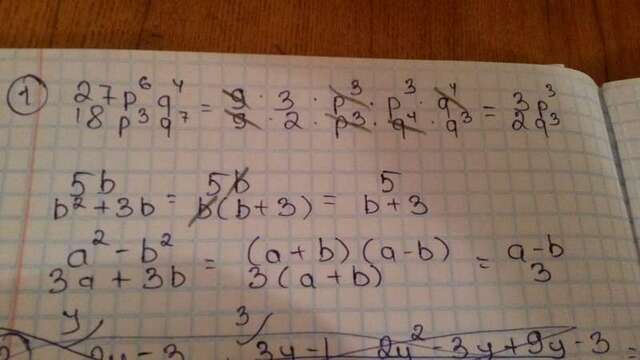 ①
27p⁶q⁴ / 18p³q⁷ = 9 · 3 · p³ · p³ · q⁴ / 9 · 2 · p³ · q⁴ · q³ = 3p³ / 2q³
5b / b² + 3b = 5b / b(b+3) = 5 / b+3
a² - b² / 3a + 3b = (a+b)(a-b) / 3(a+b) = a-b / 3